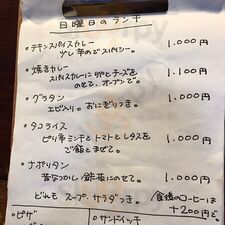 日曜日のランチ
・チキンスパイスカレー 1.000円
少し辛めでスパイシー。
・焼きカレー 1.100円
スパイスカレーに卵とチーズを
のせて、オーブンで。
・グラタン 1.000円
エビ入り。おにぎりつき。
・タコライス 1.000円
ピリ辛ミンチとトマトとレタスを
ご飯とまぜて。
・ナポリタン 1.000円
昔なつかし 鉄板にのせて。
どれも スープ、サラダつき。
食後のコーヒーは
+200円で。
・ピザ
・サンドイッチ